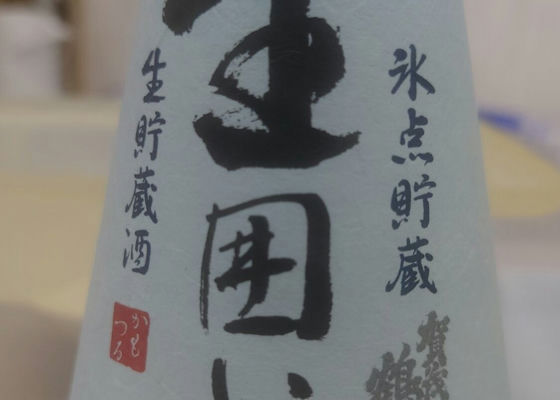 氷点貯蔵
賀茂鶴
生囲い
生貯蔵酒
かもつる